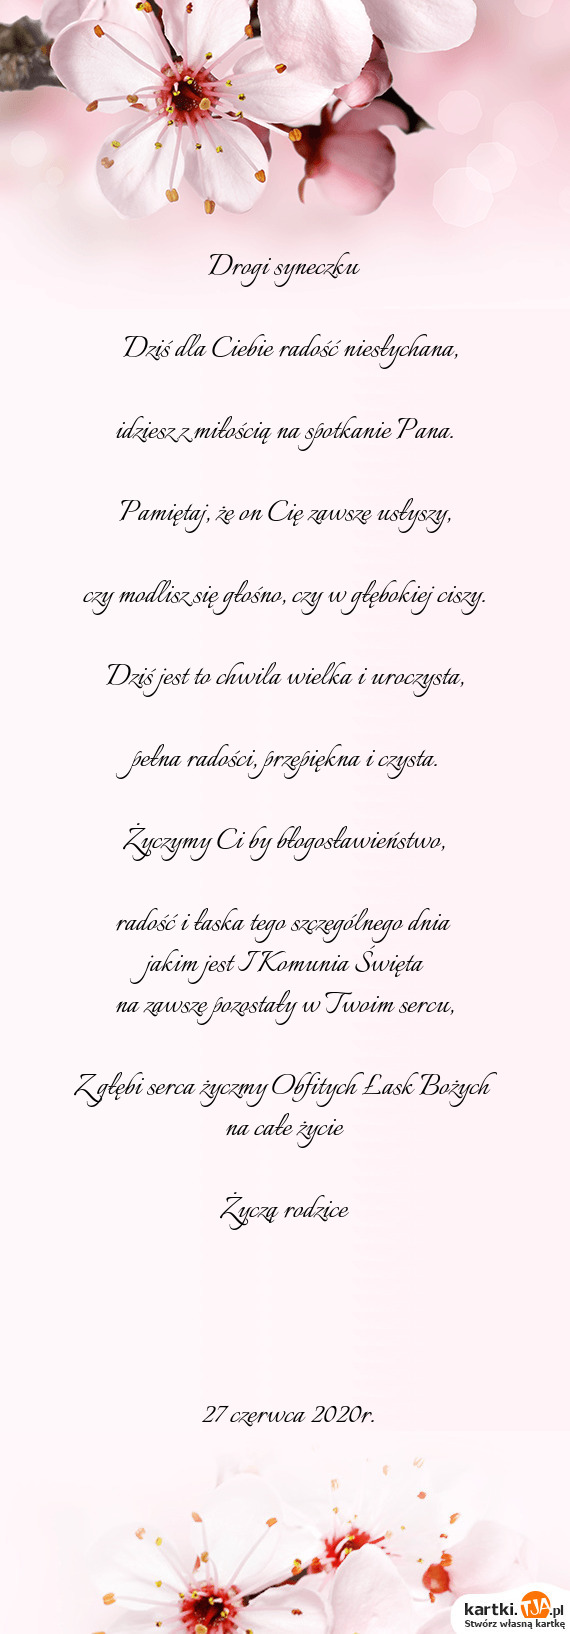 Drogi syneczku
Dziś dla Ciebie radość niesłychana,
idziesz z miłością na spotkanie Pana.
Pamiętaj, że on Cię zawsze usłyszy,
czy modlisz się głośno, czy w głębokiej ciszy.
Dziś jest to chwila wielka i uroczysta,
pełna radości, przepiękna i czysta.
Życzymy Ci by błogosławieństwo,
radość i łaska tego szczególnego dnia
jakim jest I Komunia Święta
na zawsze pozostały w Twoim sercu,
Z głębi serca życzmy Obfitych Łask Bożych
na całe życie
Życzą rodzice
27 czerwca 2020r.
kartki.TJA.pl
Stwórz własną kartkę